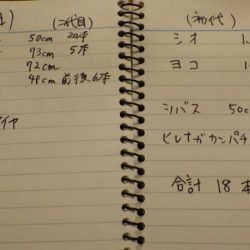 (二代目)
50cm 20本
73cm 5本
72cm
49cm 前後 6本
イヤ
(初代)
シオ 1
ヨコ 1
シバス 50c
ヒレナガカンパチ
合計 18 本